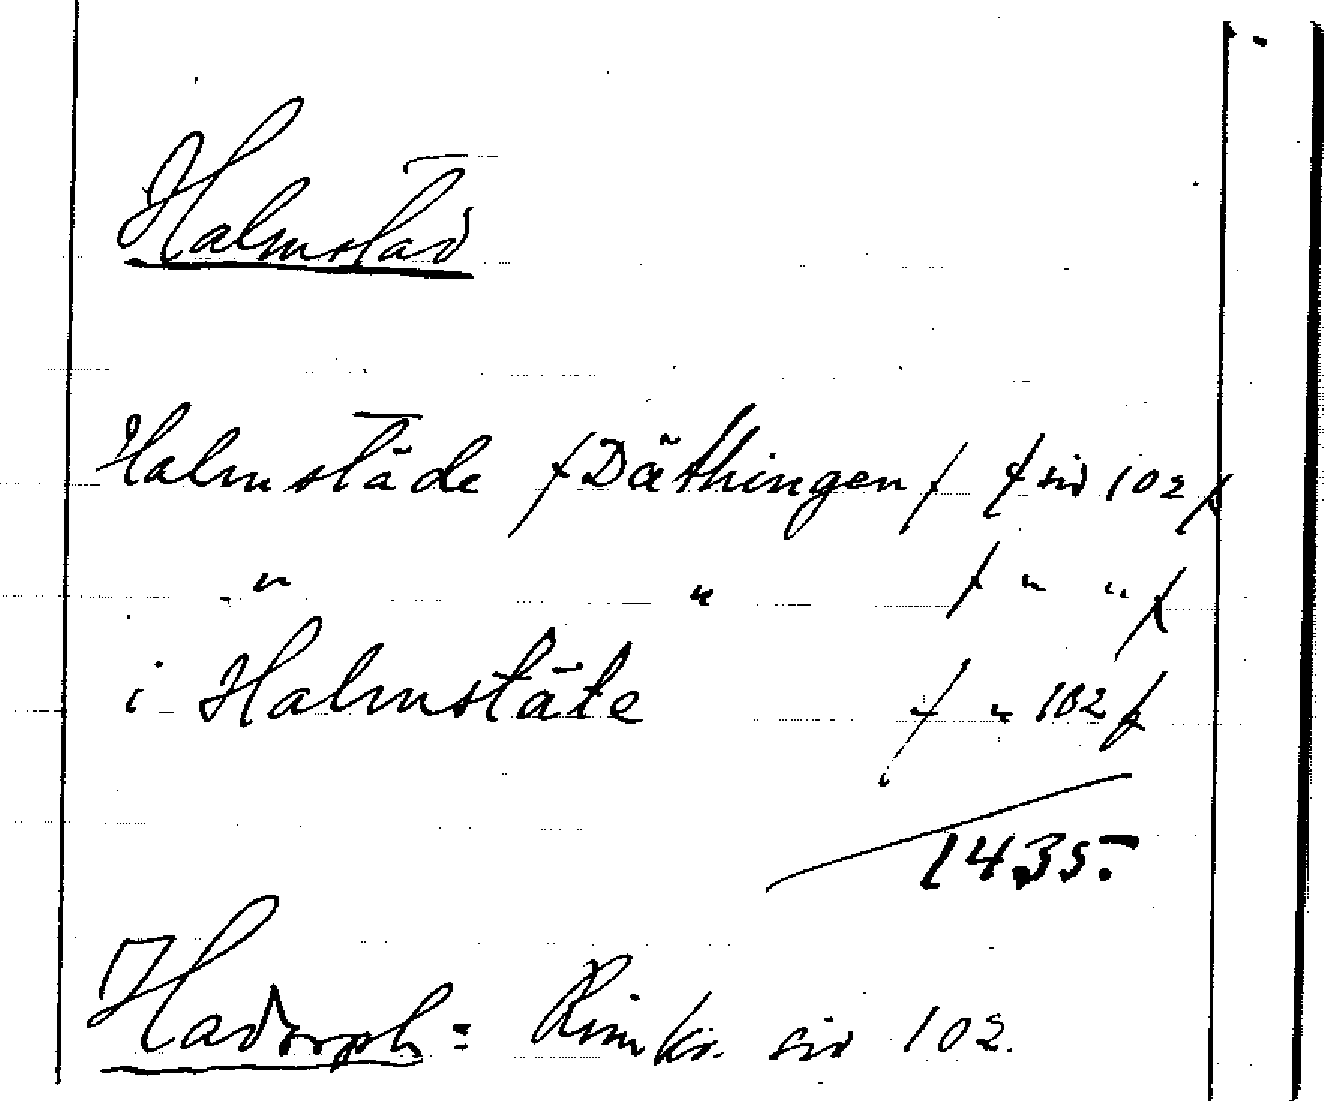 Halmstad
Halmstäde /Däthingen/ /sid 102/
" " / " " /
i Halmstäte / " 102/
1435.-
Hadorph = Rimkr. sid 102.